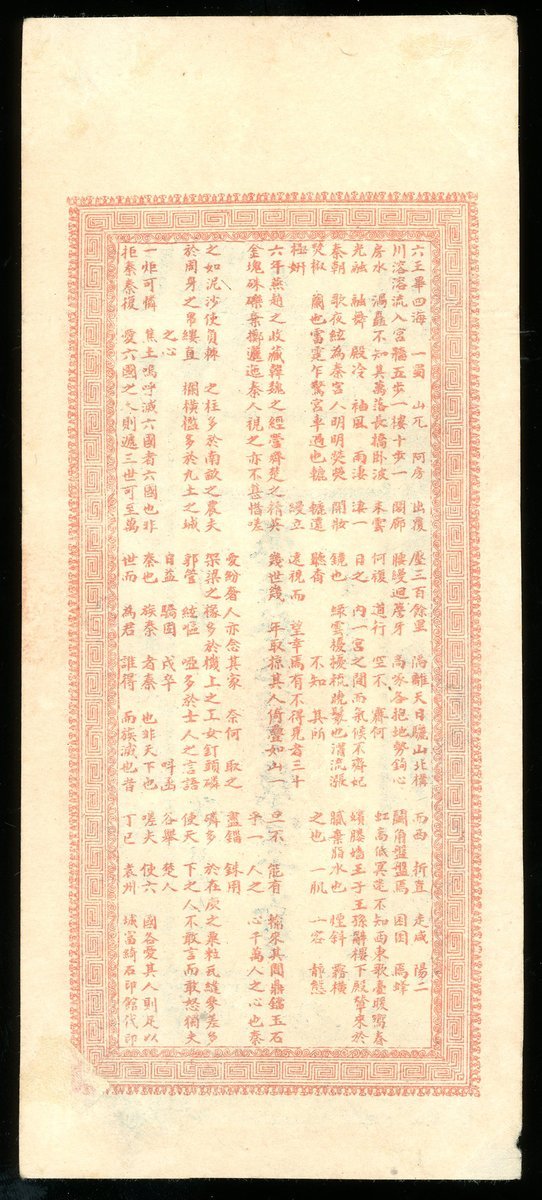 六王畢四海 一蜀 山兀 阿房 出覆 壓三百餘里 隔離天日驪山北構 而西 折直 走咸 陽二
川溶溶流入宮牆五步一樓十步一 閣廊 腰縵迴簷牙 高啄各抱地勢鈎心 鬭角盤盤焉 囷囷 焉蜂
房水 渦矗不知其萬落長橋臥波 未雲 何復 道行 空不 霽何 虹高低冥迷不知西東歌臺暖響春
光融 融舞 殿冷 袖風 雨淒 淒一 日之 內一宮之間而氣候不齊妃 嬪媵嬙王子王孫辭樓下殿輦來於
秦朝 歌夜絃為秦宮人明明熒熒 開妝 鏡也 綠雲擾擾梳曉鬟也渭流漲 膩棄脂水也 煙斜 霧橫
焚椒 蘭也雷霆乍驚宮車過也轆 轆遠 聽杳 不知 其所 之也 一肌 一容 靜態
極妍 縵立 遠視而 望幸焉有不得見者三十
六年燕趙之收藏韓魏之經營齊楚之精英 幾世幾 年取掠其人倚疊如山一 旦不 能有 輸來其間鼎鐺玉石
金塊珠礫棄擲邐迤秦人視之亦不甚惜嗟 乎一 人之 心千萬人之心也秦
愛紛奢人亦念其家 奈何 取之 盡錙 銖用
之如泥沙使負棟 之柱多於南畝之農夫 架梁之椽多於機上之工女釘頭磷 磷多 於在庾之粟粒瓦縫參差多
於周身之帛縷直 欄橫檻多於九土之城 郭管 絃嘔 啞多於士人之言語 使天 下之人不敢言而敢怒獨夫
之心 日益 驕固 戍卒 叫函 谷舉 楚人
一炬可憐 焦土嗚呼滅六國者六國也非 秦也 族秦 者秦 也非天下也 嗟夫 使六 國各愛其人則足以
拒秦秦復 愛六國之人則遞三世可至萬 世而 為君 誰得 而族滅也昔 丁巳 袁州 城富綺石印館代印